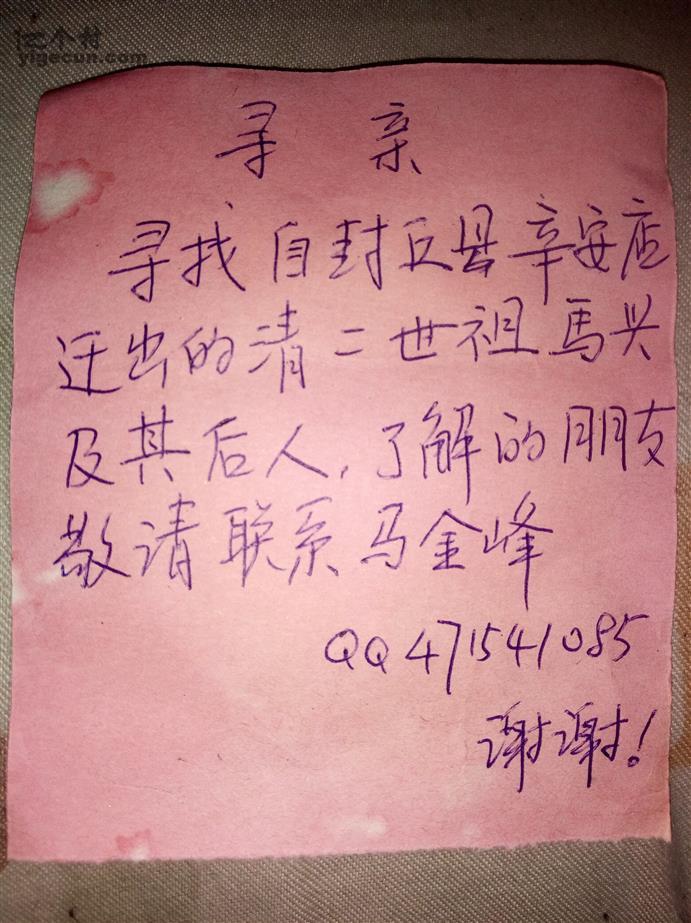 亿个村
yigecun.com
寻 亲
寻找自封丘县辛安店
迁出的清二世祖馬兴
及其后人,了解的朋友
敬请联系马金峰
QQ471541085
谢谢!